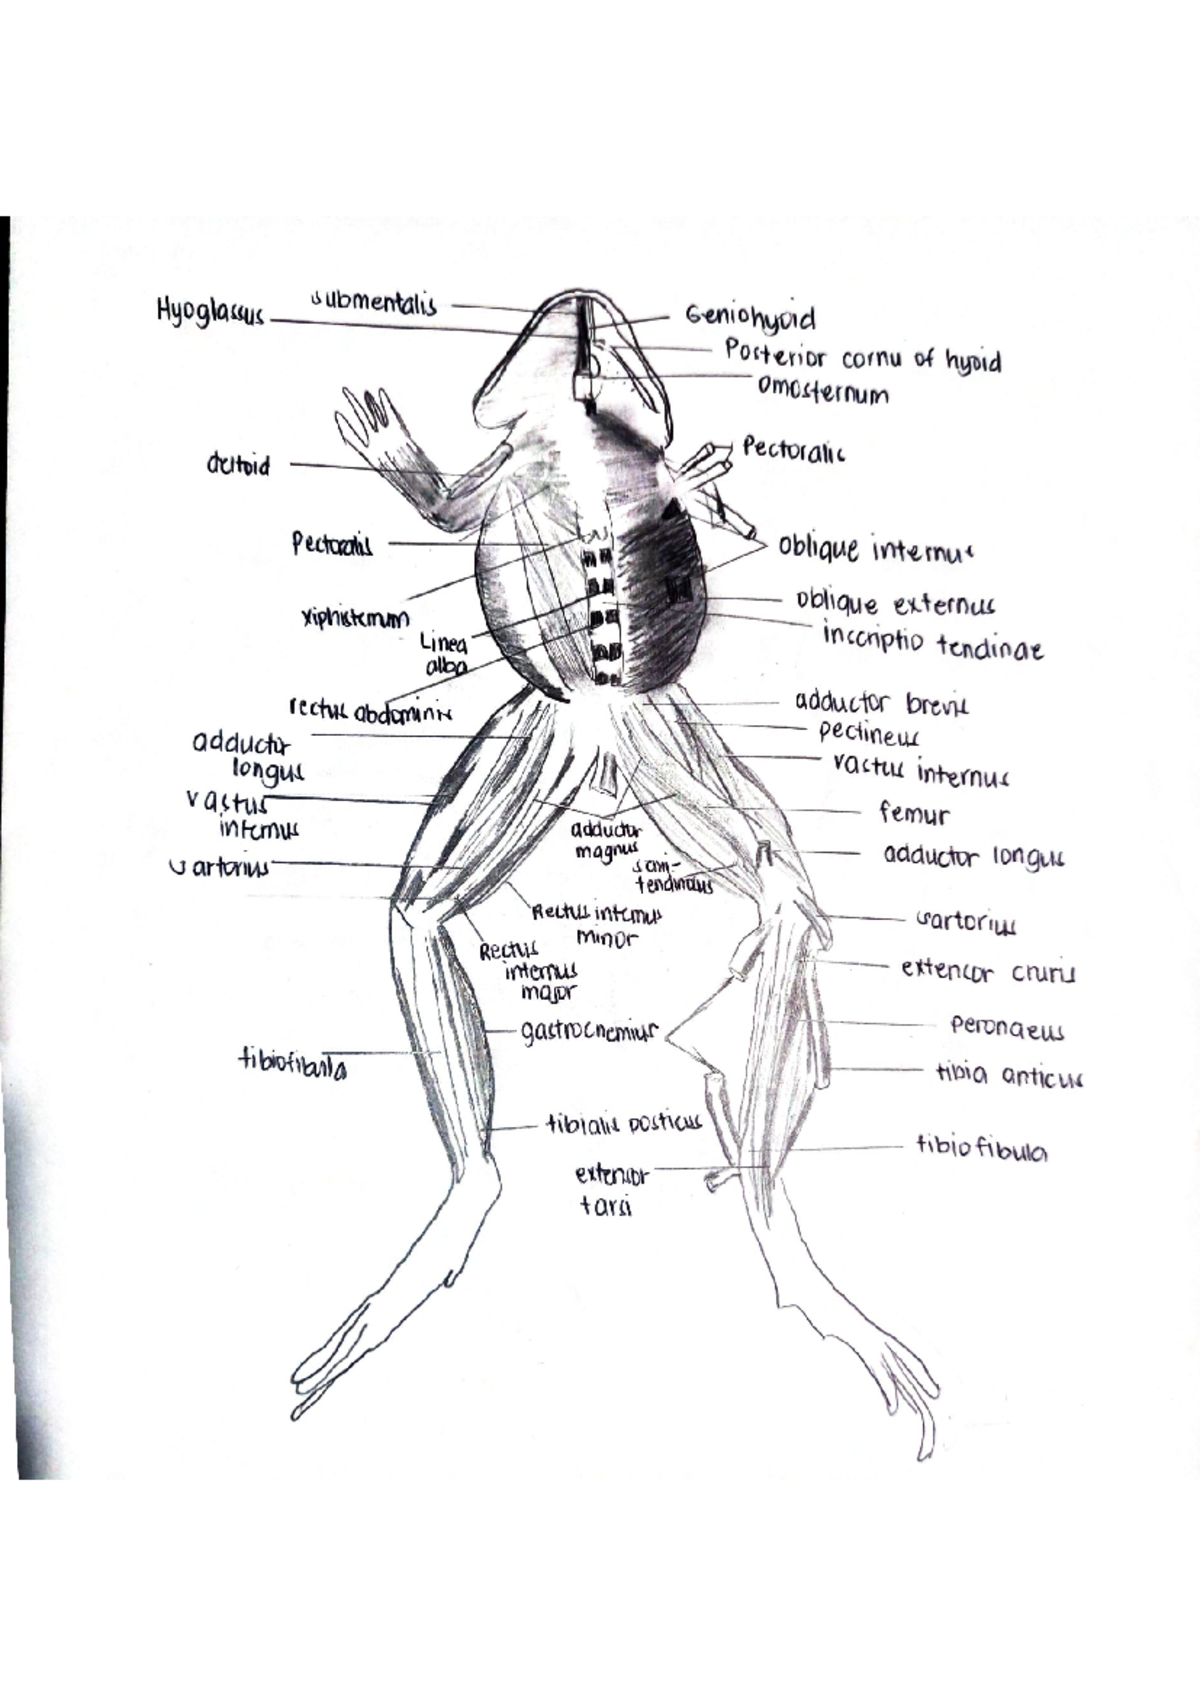 Hyoglassus
submentalis
Geniohyoid
Posterior cornu of hyoid
omosternum
Pectoralis
deltoid
Pectoralis
oblique internus
xiphisternum
oblique externus
inscriptio tendinae
Linea
alba
rectus abdominis
adductor brevis
pectineus
adductor
longus
vastus internus
vastus
internus
femur
adductor
magnus
adductor longus
sartorius
semi-
tendinous
Rectus internus
minor
sartorius
Rectus
internus
major
extensor cruris
gastrocnemius
peronaeus
tibiofibula
tibia anticus
tibialis posticus
tibiofibula
extensor
tarsi